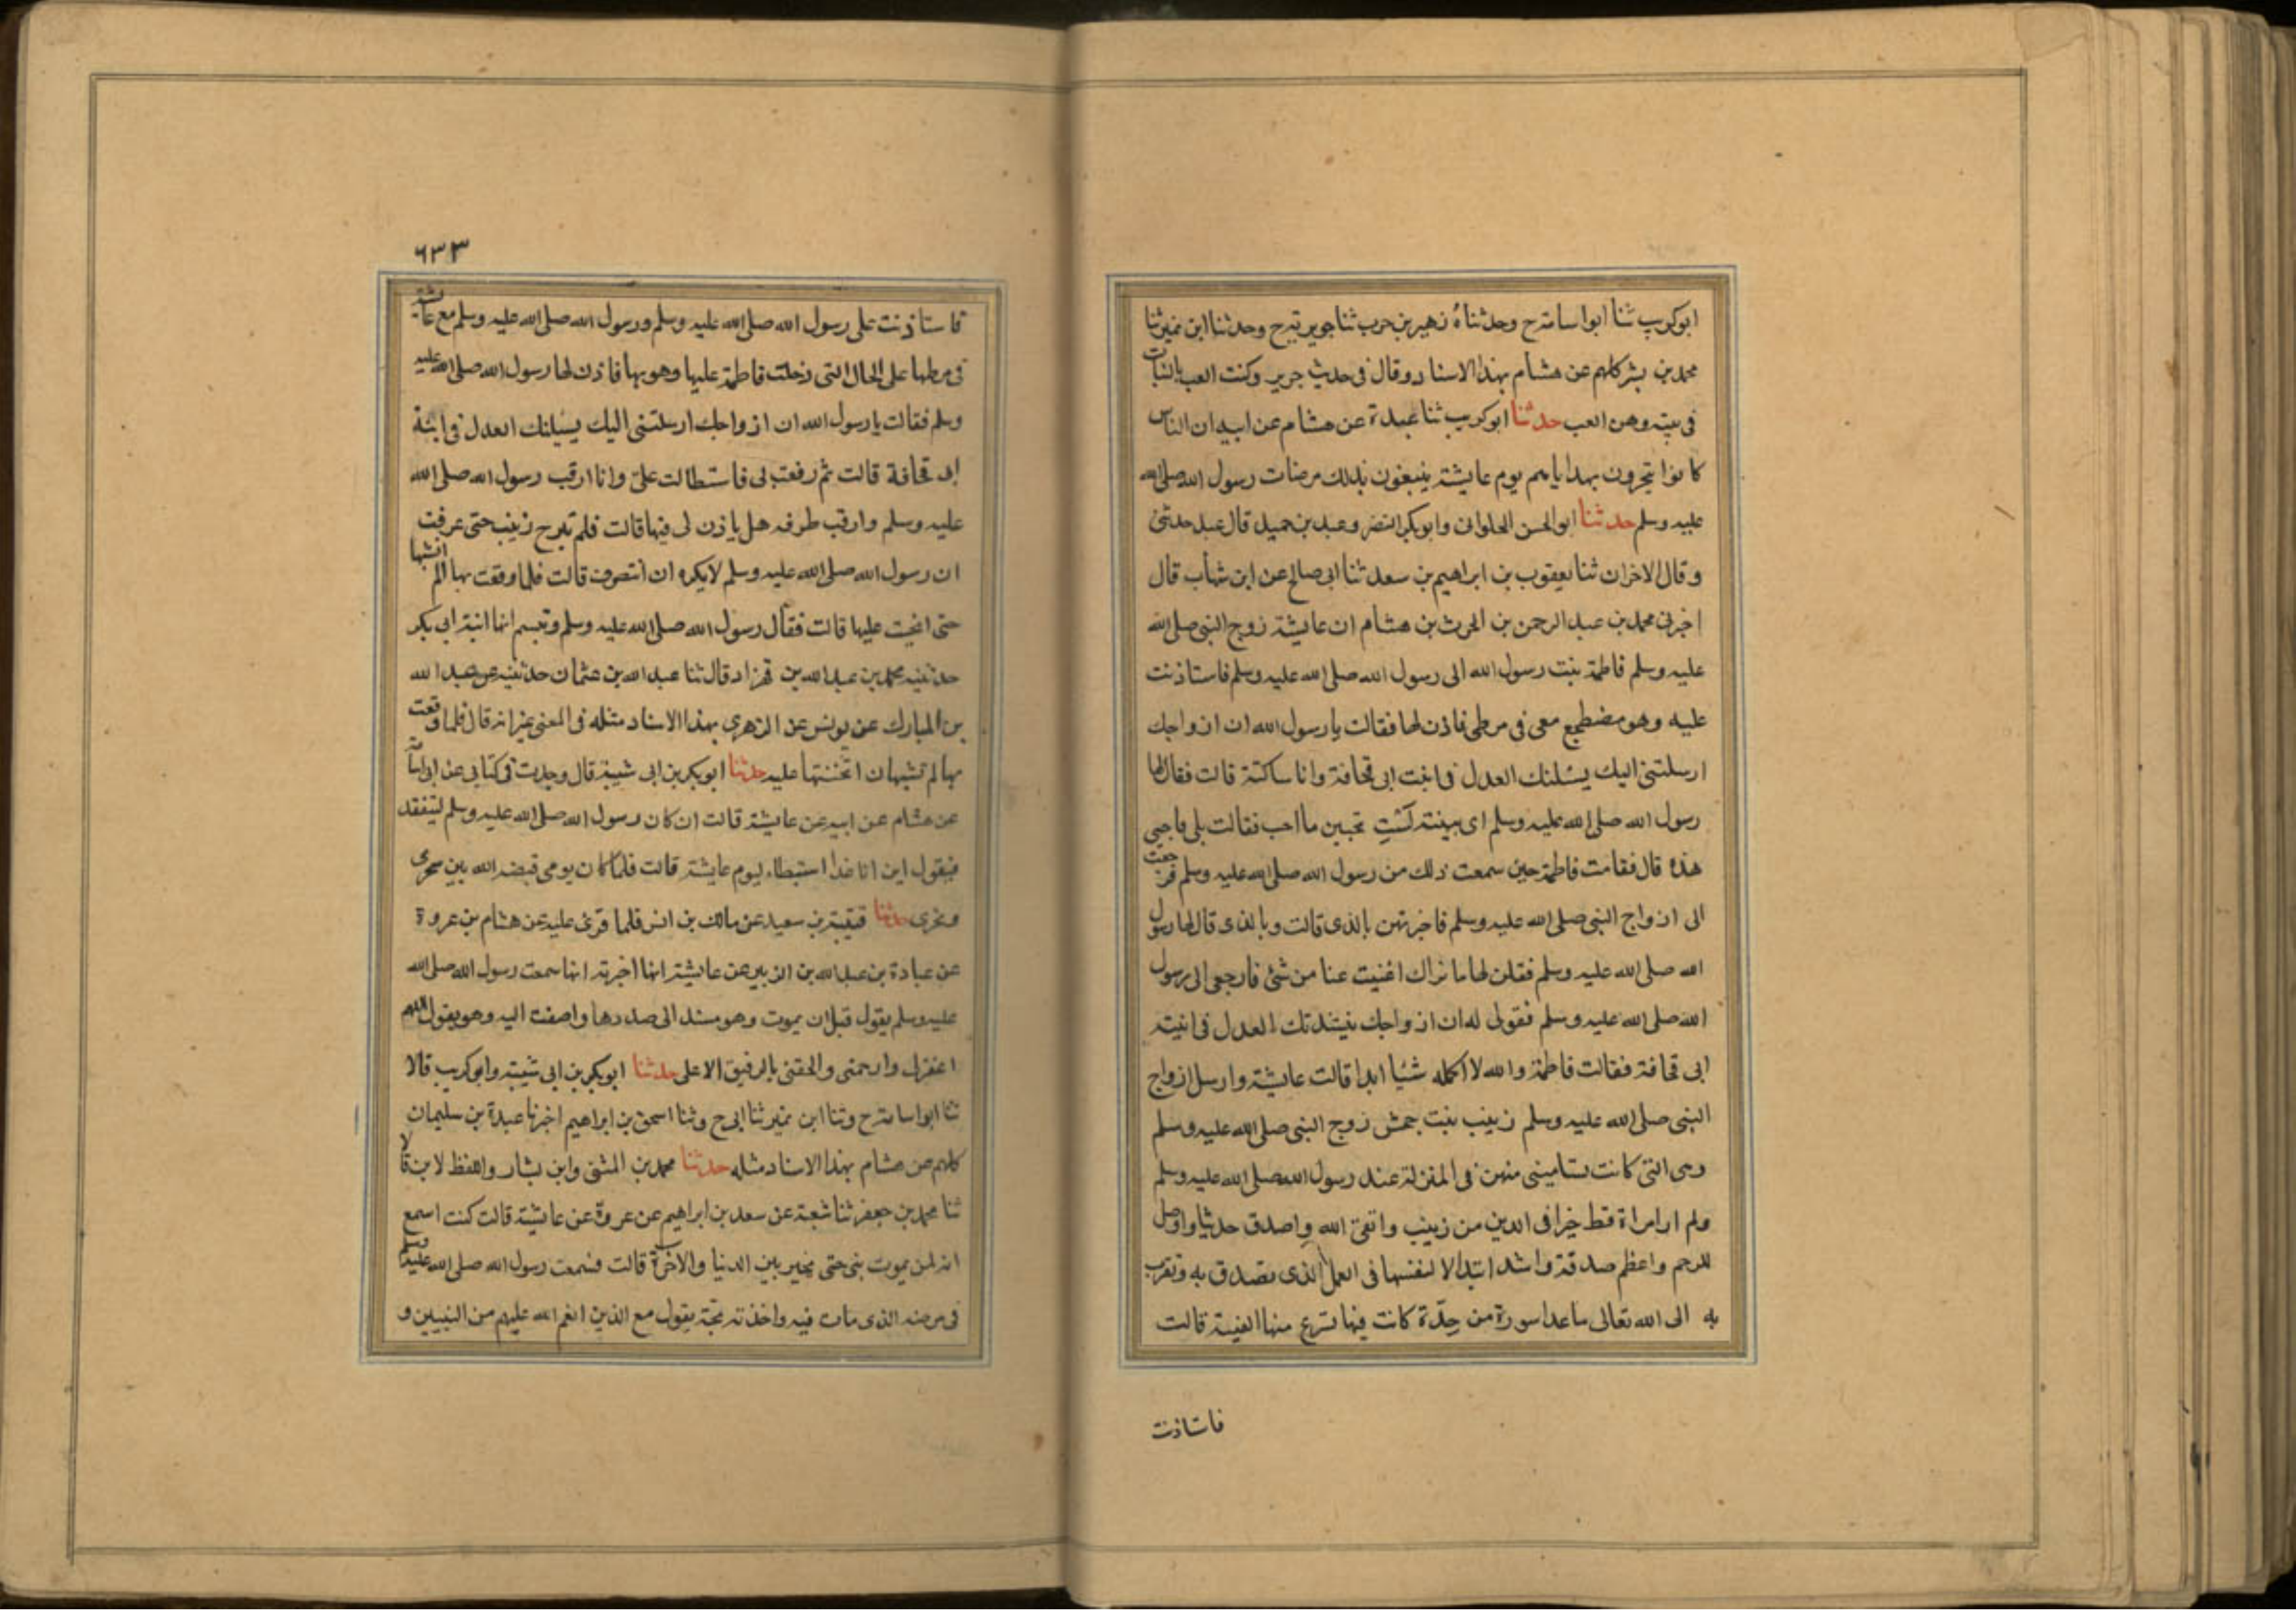 ابوكريب ثنا ابواسامة ح وحدثناه زهير بن حرب ثنا جرير ح وحدثنا ابن نمير ثنا
محمد بن بشر كلهم عن هشام بهذا الاسناد وقال فى حديث جرير وكنت العب بالبنات
فى بيته وهن العب حدثنا ابوكريب ثنا عبدة عن هشام عن ابيه ان الناس
كانوا يتحرون بهداياهم يوم عايشة يبتغون بذلك مرضات رسول الله صلى الله
عليه وسلم حدثنا ابو الحسن الحلوانى وابوبكر النضر وعبد بن حميد قال عبد حدثنى
وقال الاخران ثنا يعقوب بن ابراهيم بن سعد ثنا ابى صالح عن ابن شهاب قال
اخبرنى محمد بن عبد الرحمن بن الحرث بن هشام ان عايشة زوج النبى صلى الله
عليه وسلم فاطمة بنت رسول الله الى رسول الله صلى الله عليه وسلم فاستاذنت
عليه وهو مضطجع معى فى مرطى فاذن لها فقالت يا رسول الله ان ازواجك
ارسلتنى اليك يسئلنك العدل فى ابنت ابى قحافة وانا ساكتة قالت فقال لها
رسول الله صلى الله عليه وسلم اى بينة الست تحبين ما احب فقالت بلى فاحبى
هذه قال فقامت فاطمة حين سمعت ذلك من رسول الله صلى الله عليه وسلم فرجعت
الى ازواج النبى صلى الله عليه وسلم فاخبرتهن بالذى قالت وبالذى قال لها رسول
الله صلى الله عليه وسلم فقلن لها ما نراك اغنيت عنا من شئ فارجعى الى رسول
الله صلى الله عليه وسلم فقولى له ان ازواجك ينشدنك العدل فى ابنة
ابى قحافة فقالت فاطمة والله لا اكلمه شيئا ابدا قالت عايشة وارسل ازواج
النبى صلى الله عليه وسلم زينب بنت جحش زوج النبى صلى الله عليه وسلم
وهى التى كانت تسامينى منهن فى المنزلة عند رسول الله صلى الله عليه وسلم
ولم ار امراة قط خيرا فى الدين من زينب واتقى الله واصدق حديثا واوصل
للرحم واعظم صدقة واشد ابتذالا لنفسها فى العمل الذى تصدق به وتقرب
به الى الله تعالى ماعدا سورة من حدة كانت فيها تسرع منها الفيئة قالت
فاستاذنت
٦٣٣
فاستاذنت على رسول الله صلى الله عليه وسلم ورسول الله صلى الله عليه وسلم مع عائشة
فى مرطها على الحال التى دخلت فاطمة عليها وهو بها فاذن لها رسول الله صلى الله عليه
وسلم فقالت يا رسول الله ان ازواجك ارسلتنى اليك يسئلنك العدل فى ابنة
ابى قحافة قالت ثم وقعت بى فاستطالت على وانا ارقب رسول الله صلى الله
عليه وسلم وارقب طرفه هل ياذن لى فيها قالت فلم تبرح زينب حتى عرفت
ان رسول الله صلى الله عليه وسلم لا يكره ان انتصرت قالت فلما وقعت بها لم انشبها
حتى انحيت عليها قالت فقال رسول الله صلى الله عليه وسلم وتبسم انها ابنة ابى بكر
حدثنيه محمد بن عبد الله بن قهزاد قال ثنا عبد الله بن عثمان حدثنيه عن عبد الله
بن المبارك عن يونس عن الزهرى بهذا الاسناد مثله فى المعنى غير انه قال فلما وقعت
بها لم تشبها ان اثخنتها عليه حدثنا ابوبكر بن ابى شيبة قال وجدت فى كتابى عن ابى اسامة
عن هشام عن ابيه عن عايشة قالت ان كان رسول الله صلى الله عليه وسلم ليتفقد
فيقول اين انا غدا استبطاء ليوم عايشة قالت فلما كان يومى قبضه الله بين سحرى
ونحرى حدثنا قتيبة بن سعيد عن مالك بن انس فلما قرئ عليه عن هشام بن عروة
عن عبادة بن عبد الله بن الزبير عن عايشة انها اخبرته انها سمعت رسول الله صلى الله
عليه وسلم يقول قبل ان يموت وهو مسند الى صدرها واصغت اليه وهو يقول اللهم
اغفر لى وارحمنى والحقنى بالرفيق الاعلى حدثنا ابوبكر بن ابى شيبة وابوكريب قالا
ثنا ابو اسامة ح وثنا ابن نمير ثنا ابى ح وثنا اسحق بن ابراهيم اخبرنا عبدة بن سليمان
كلهم عن هشام بهذا الاسناد مثله حدثنا محمد بن المثنى وابن بشار واللفظ لابن قالا
ثنا محمد بن جعفر ثنا شعبة عن سعد بن ابراهيم عن عروة عن عايشة قالت كنت اسمع
انه لمن يموت نبى حتى يخير بين الدنيا والاخرة قالت فسمعت رسول الله صلى الله عليه وسلم
فى مرضه الذى مات فيه واخذته بحة يقول مع الذين انعم الله عليهم من النبيين و